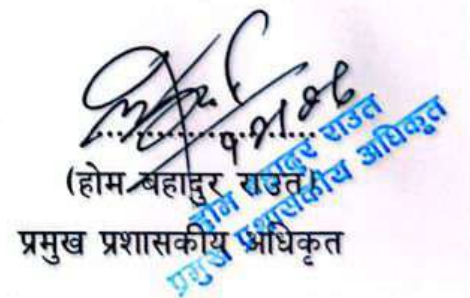 (होम बहादुर राउत)
प्रमुख प्रशासकीय अधिकृत
होम बहादुर राउत
प्रमुख प्रशासकीय अधिकृत